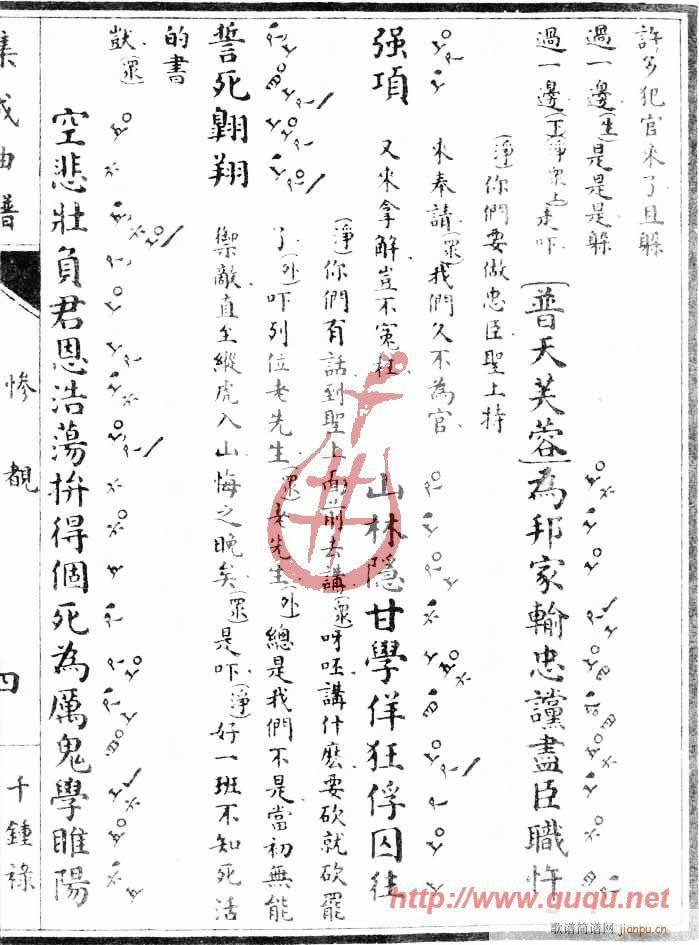 許多犯官來了且躲
過一邊(生)是是是躲
過一邊(丑淨眾上)走吓
[普天芙蓉]為邦家輸忠讜盡臣職忤
(淨)你們要做忠臣聖上特
來奉請(眾)我們久不為官
又來拿解豈不冤枉
强項
山林隱甘學佯狂俘囚往
(淨)你們有話到聖上面前去講(眾)呀呸講什麽要砍就砍罷
了(外)吓列位老先生(眾)老先生(外)總是我們不是當初無能
禦敵直至縱虎入山悔之晚矣(眾)是吓(淨)好一班不知死活
誓死翺翔
的書
獃(眾)
空悲壯負君恩浩蕩拚得個死為厲鬼學睢陽
集成曲譜
慘覩
四
千鍾祿
http://www.guqu.net
歌谱简谱网
jianpu.cn